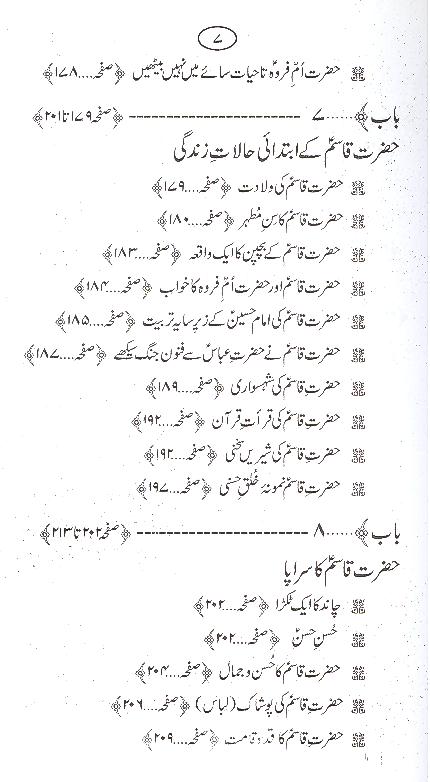 ۷
حضرت اُمِّ فروہؑ تاحیات سائے میں نہیں بیٹھیں ﴿صفحہ....۱۷۸﴾
باب ﴾......۷ ----------------------- ﴿صفحہ ۱۷۹ تا ۲۰۱﴾
حضرت قاسمؑ کے ابتدائی حالاتِ زندگی
حضرت قاسمؑ کی ولادت ﴿صفحہ....۱۷۹﴾
حضرت قاسمؑ کا سِنِ مُطہر ﴿صفحہ....۱۸۰﴾
حضرت قاسمؑ کے بچپن کا ایک واقعہ ﴿صفحہ....۱۸۳﴾
حضرت قاسمؑ اور حضرت اُمِّ فروہ کا خواب ﴿صفحہ....۱۸۴﴾
حضرت قاسمؑ کی امام حسینؑ کے زیرِ سایہ تربیت ﴿صفحہ....۱۸۵﴾
حضرت قاسمؑ نے حضرتِ عباسؑ سے فنونِ جنگ سیکھے ﴿صفحہ....۱۸۷﴾
حضرتِ قاسمؑ کی شہسواری ﴿صفحہ....۱۸۹﴾
حضرتِ قاسمؑ کی قرأتِ قرآن ﴿صفحہ....۱۹۲﴾
حضرتِ قاسمؑ کی شیریں سخنی ﴿صفحہ....۱۹۲﴾
حضرتِ قاسمؑ نمونۂ خُلقِ حسنی ﴿صفحہ....۱۹۷﴾
باب ﴾......۸ ----------------------- ﴿صفحہ ۲۰۲ تا ۲۱۳﴾
حضرت قاسمؑ کا سراپا
چاند کا ایک ٹکڑا ﴿صفحہ....۲۰۲﴾
حُسنِ حسنؑ ﴿صفحہ....۲۰۲﴾
حضرت قاسمؑ کا حُسن و جمال ﴿صفحہ....۲۰۴﴾
حضرتِ قاسمؑ کی پوشاک (لباس) ﴿صفحہ....۲۰۶﴾
حضرتِ قاسمؑ کا قد و قامت ﴿صفحہ....۲۰۹﴾